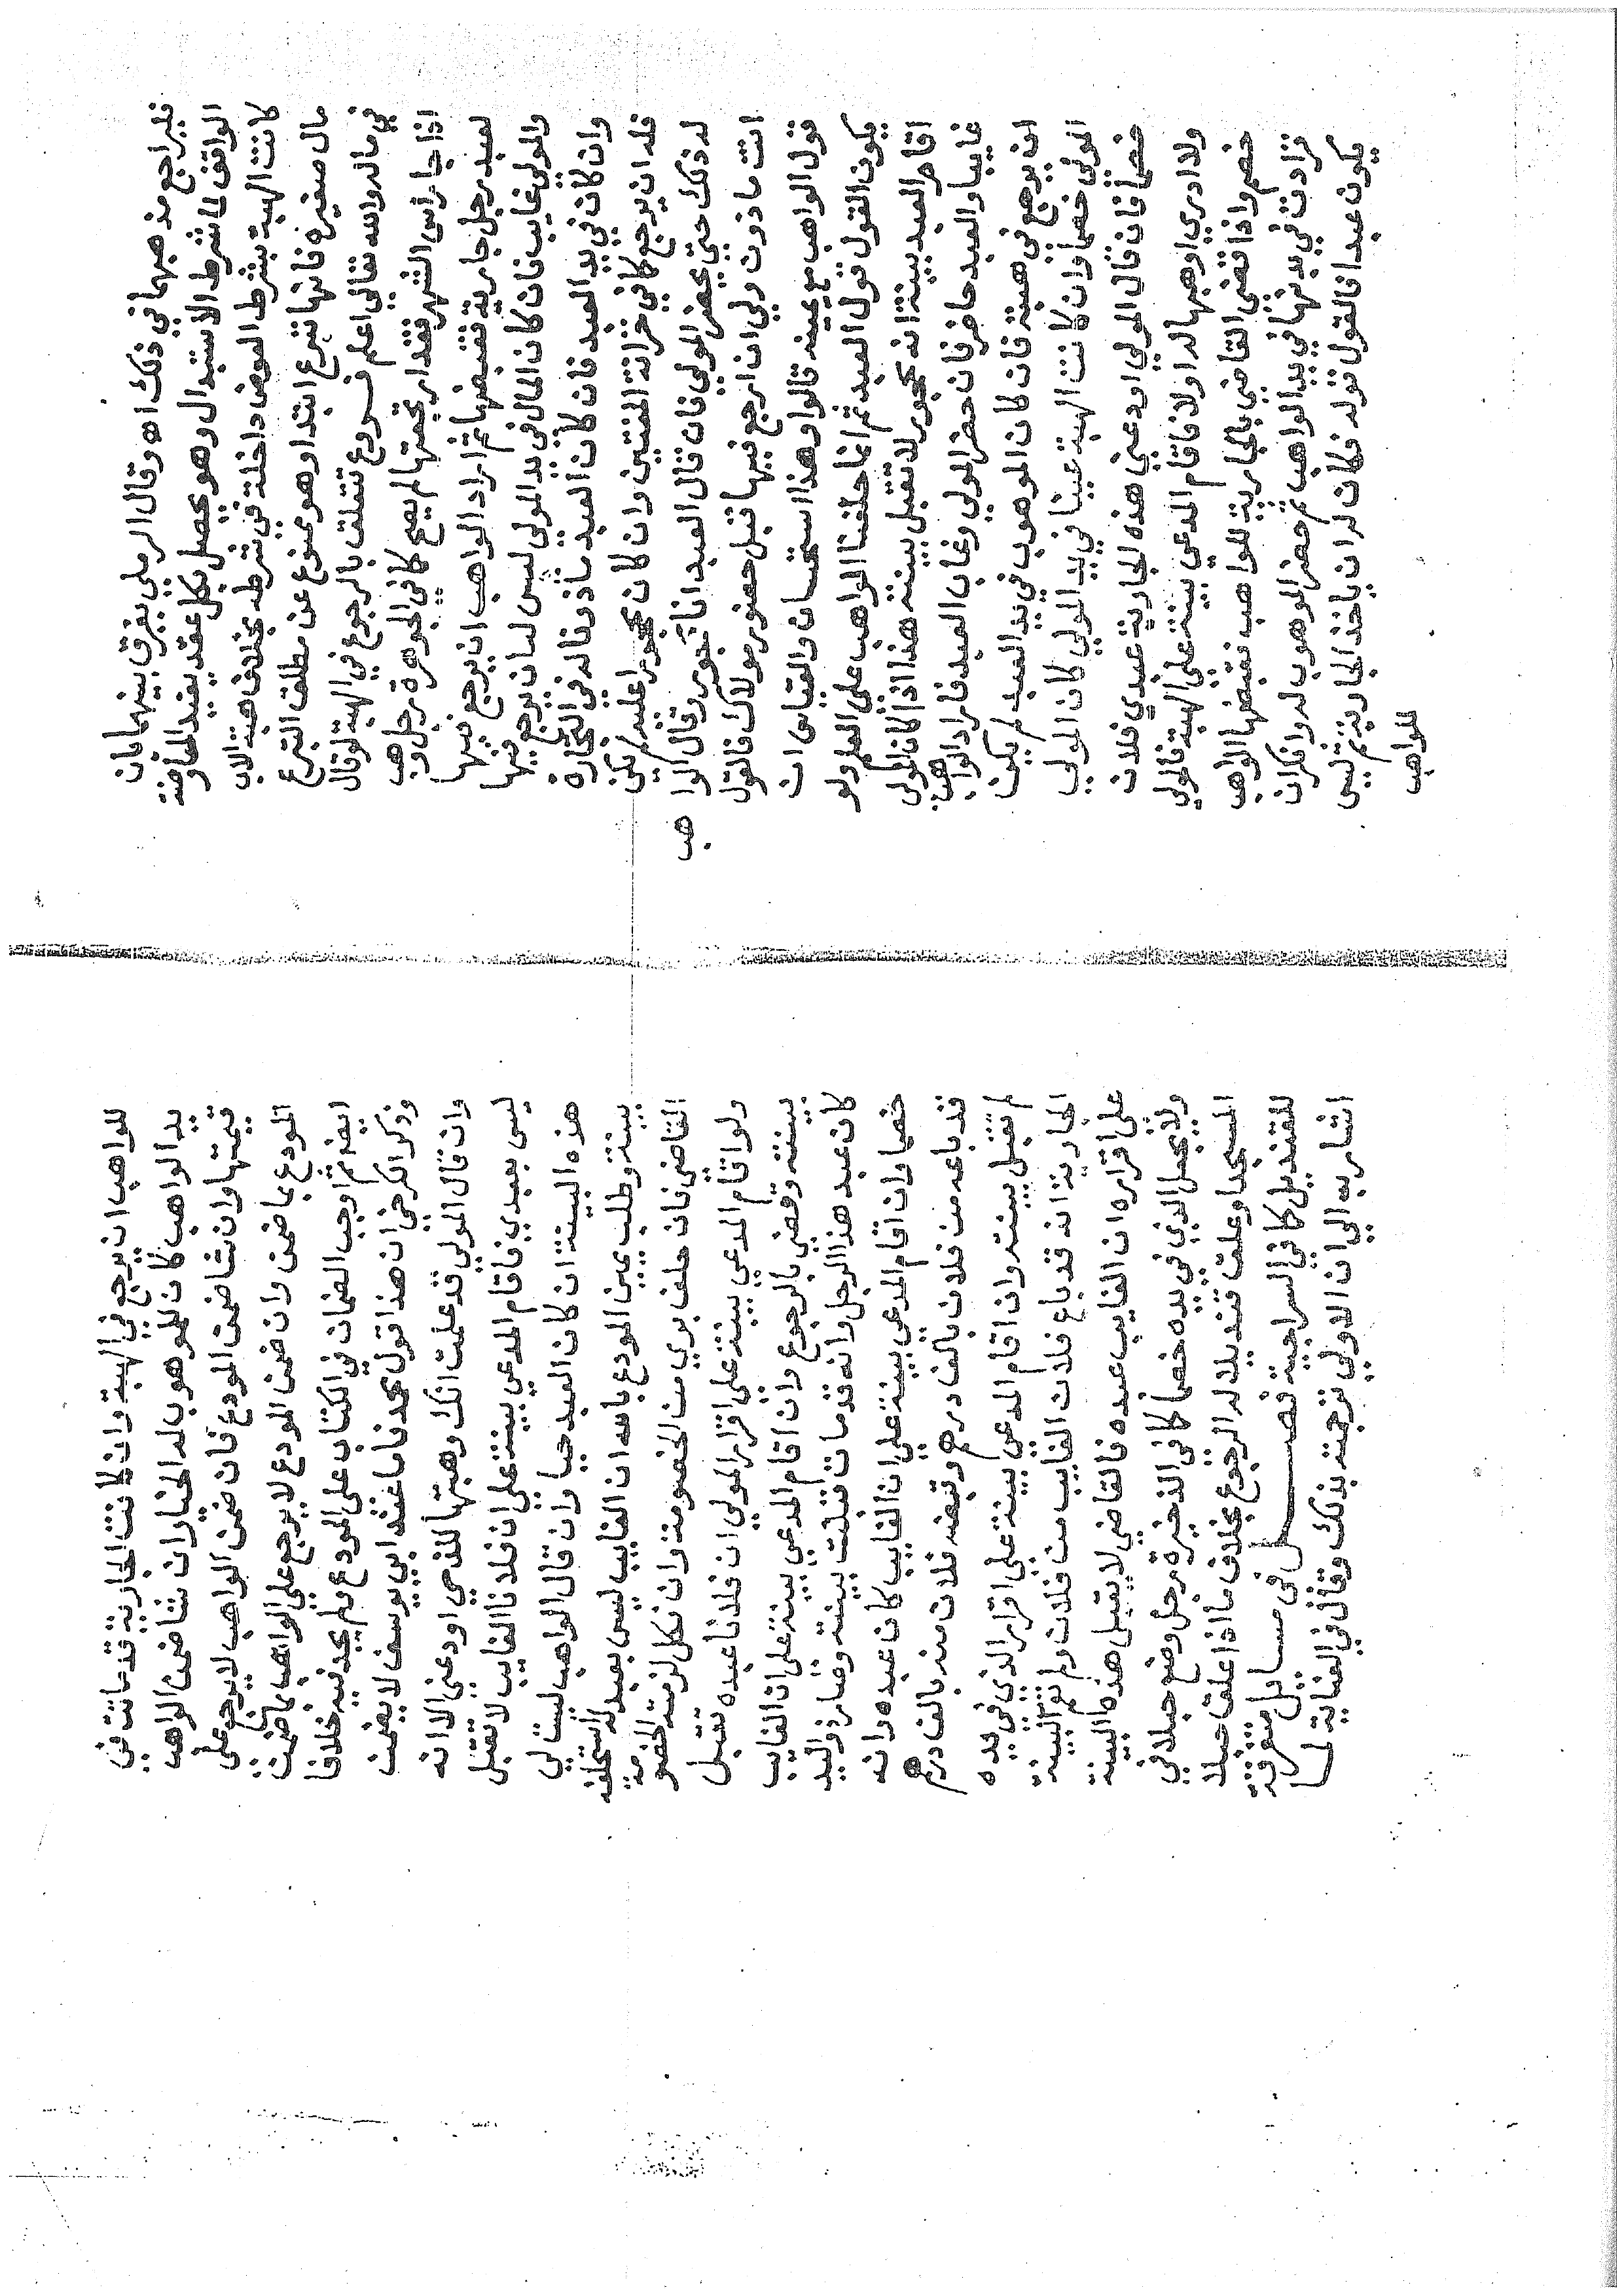 فليراجع مذهبهما في ذلك اه وقال الرملي يفرق بينهما بان
الواقف لما شرط الاستبدال وهو يحصل بكل عقد يفيد المعاوضة
كانت الهبة بشرط العوض داخلة في شرطه بخلاف هبة الاب
مال صغيره فانها تبرع ابتدا وهو ممنوع عن مطلق التبرع
في ماله والله تعالي اعلم فروع تتعلق بالرجوع في الهبة لو قال
اذا جا راس الشهر فقد ارتجعتها لم يصح كما في الجوهرة رجل وهب
لعبد رجل جارية فقبضها ثم اراد الواهب ان يرجع فيها
والمولي غايب فان كان المال في يد المولي ليس له ان يرجع فيها
وان كان في يد العبد فان كان العبد ماذونا له في التجارة
فله ان يرجع كما في خزانة المفتين وان كان محجورا عليه لم يكن
له ذلك حتي يحضر المولي فان قال العبد انا محجور وقال الواهب
انت ماذون ولي ان ارجع فيها قبل حضور مولاك فالقول
قول الواهب مع يمينه قالوا وهذا استحسان والقياس ان
يكون القول قول العبد ثم انما حلفنا الواهب علي العلم ولو
اقام العبد بينة انه محجور لا تقبل بينته هذا اذا كان المولي
غايبا والعبد حاضر فان حضر المولي وغاب العبد فاراد الواهب
ان يرجع في هبته فان كان الموهوب في يد العبد لم يكن
المولي خصما وان كانت الهبة عينا في يد المولي كان المولي
خصما فان قال المولي اودعني هذه الجارية عبدي فلان
ولا ادري اوهبها له اولا فاقام المدعي بينة علي الهبة فالمولي
خصم واذا قضي القاضي بالجارية للواهب فقبضها الواهب
فزادت في بدنها في يد الواهب ثم حضر الموهوب له وانكر ان
يكون عبدا فالقول قوله فكان له ان ياخذ الجارية ثم ليس
للواهب
للواهب ان يرجع في الهبة وان كانت الجارية قد ماتت في
يد الواهب كان للموهوب له الخيار ان شا ضمن الواهب
قيمتها وان شا ضمن المودع فان ضمن الواهب لا يرجع علي
المودع بما ضمن وان ضمن المودع لا يرجع علي الواهب بما ضمن
ايضا ثم اوجب الضمان في الكتاب علي المودع ولم يحك فيه خلافا
وذكر الكرخي ان هذا قول محمد فاما عند ابي يوسف لا يضمن
وان قال المولي قد علمت انك وهبتها للذي اودعني الا انه
ليس بعبدي فاقام المدعي بينة علي ان فلانا الغايب لا تقبل
هذه البينة ان كان العبد حيا وان قال الواهب ليست لي
بينة وطلب يمين المودع بالله ان الغايب ليس بعبد له استحلفه
القاضي فان حلف بري من الخصومة وان نكل لزمته الخصومة
ولو اقام المدعي بينة علي اقرار المولي ان فلانا عبده تقبل
بينته وقضي بالرجوع وان اقام المدعي بينة علي ان الغايب
كان عبد هذا الرجل وانه قد مات قبلت بينته وصار ذو اليد
خصما وان اقام المدعي بينة علي ان الغايب كان عبده وانه
قد باعه من فلان بالف درهم وقبضه فلان منه بالف درهم
لم تقبل بينته وان اقام المدعي بينة علي اقرار الذي في يده
الجارية انه قد باع فلان الغايب من فلان ولم تقم البينة
علي اقراره ان الغايب عبده فالقاضي لا يقبل هذه البينة
ولا يجعل الذي في يده خصما كما في الذخيرة رجل وضع حبلا في
المسجد او علق قنديلا له الرجوع بخلاف ما اذا علق حبلا
للقنديل كما في السراجية فصل في مسايل متفرقة
اشار به الي ان الاولي ترجمته بذلك وقال في العناية لما